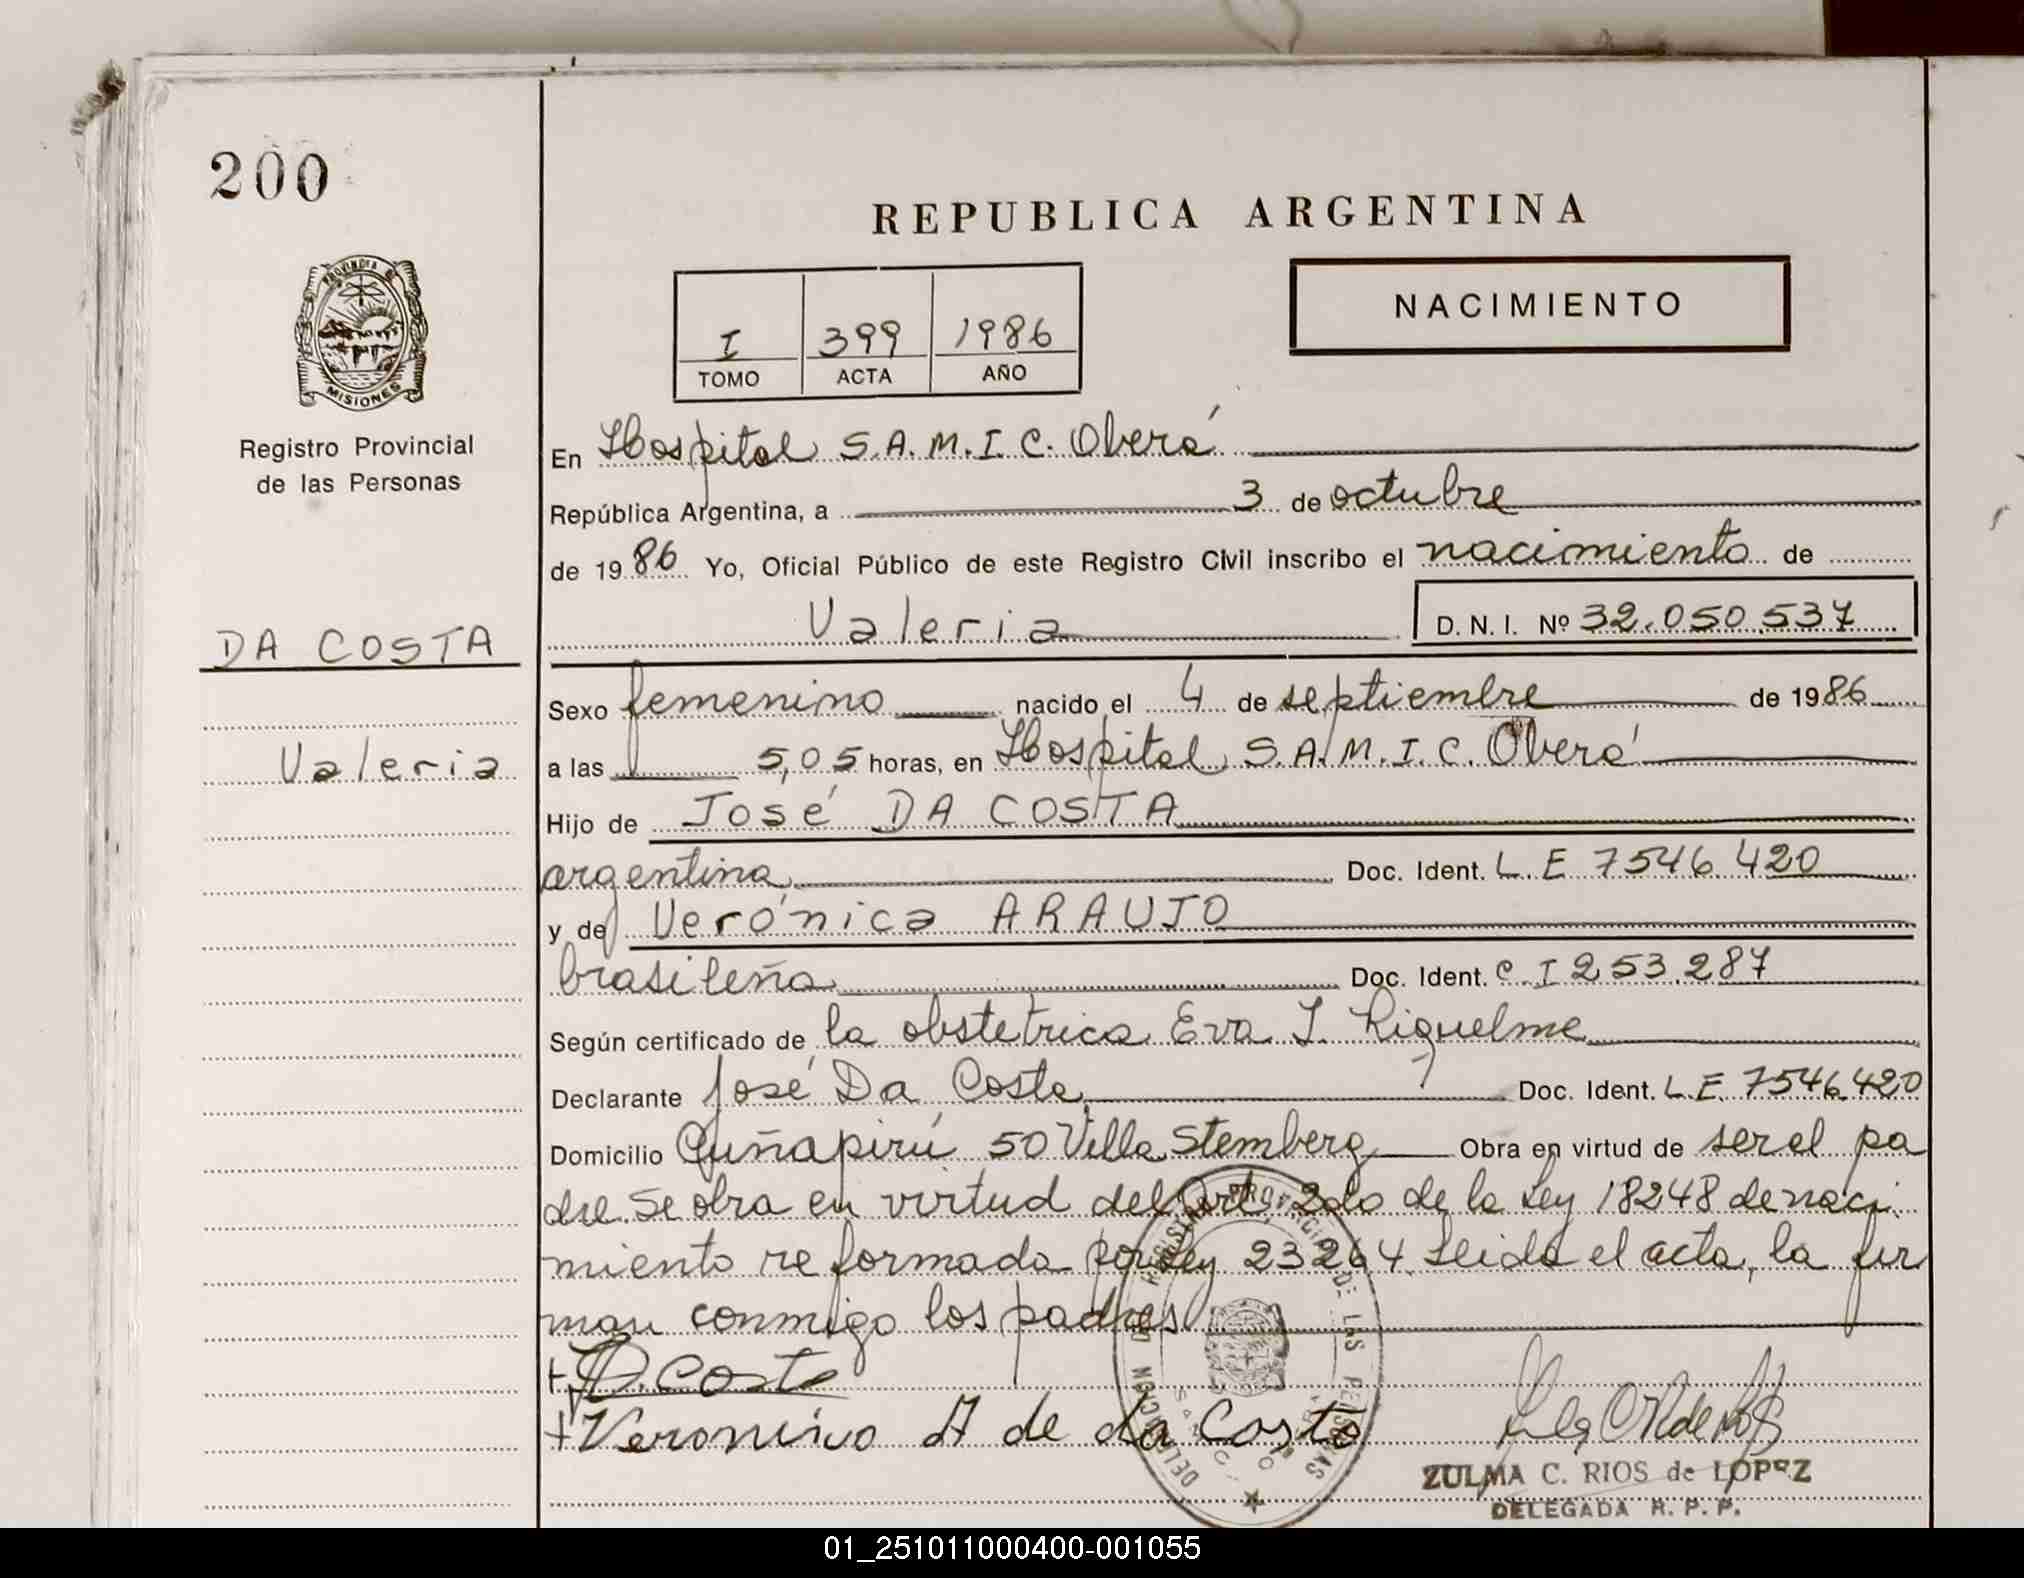 200
REPUBLICA ARGENTINA
PROVINCIA DE
MISIONES
Registro Provincial
de las Personas
I 399 1986
TOMO ACTA AÑO
NACIMIENTO
En Hospital S.A.M.I.C. Oberá
República Argentina, a 3 de octubre
de 1986 Yo, Oficial Público de este Registro Civil inscribo el nacimiento de
DA COSTA
Valeria D.N.I. Nº 32.050.537
Sexo femenino nacido el 4 de septiembre de 1986
Valeria
a las 5,05 horas, en Hospital S.A.M.I.C. Oberá
Hijo de José DA COSTA
argentina Doc. Ident. L.E 7546.420
y de Verónica ARAUJO
brasileña Doc. Ident. C.I 253.287
Según certificado de la obstetrica Eva I. Riquelme
Declarante José Da Costa Doc. Ident. L.E. 7546.420
Domicilio Cuñapirú 50 Villa Stemberg Obra en virtud de ser el pa
dre. Se obra en virtud del Art. 2do de la Ley 18248 de naci
miento reformada por Ley 23264. Leida el acta, la fir
man conmigo los padres
+ D. Costa
+ Veronica A de da Costa
DELEGACION DEL REGISTRO PROVINCIAL DE LAS PERSONAS
ZULMA C. RIOS de LOPEZ
DELEGADA R. P. P.
01_251011000400-001055